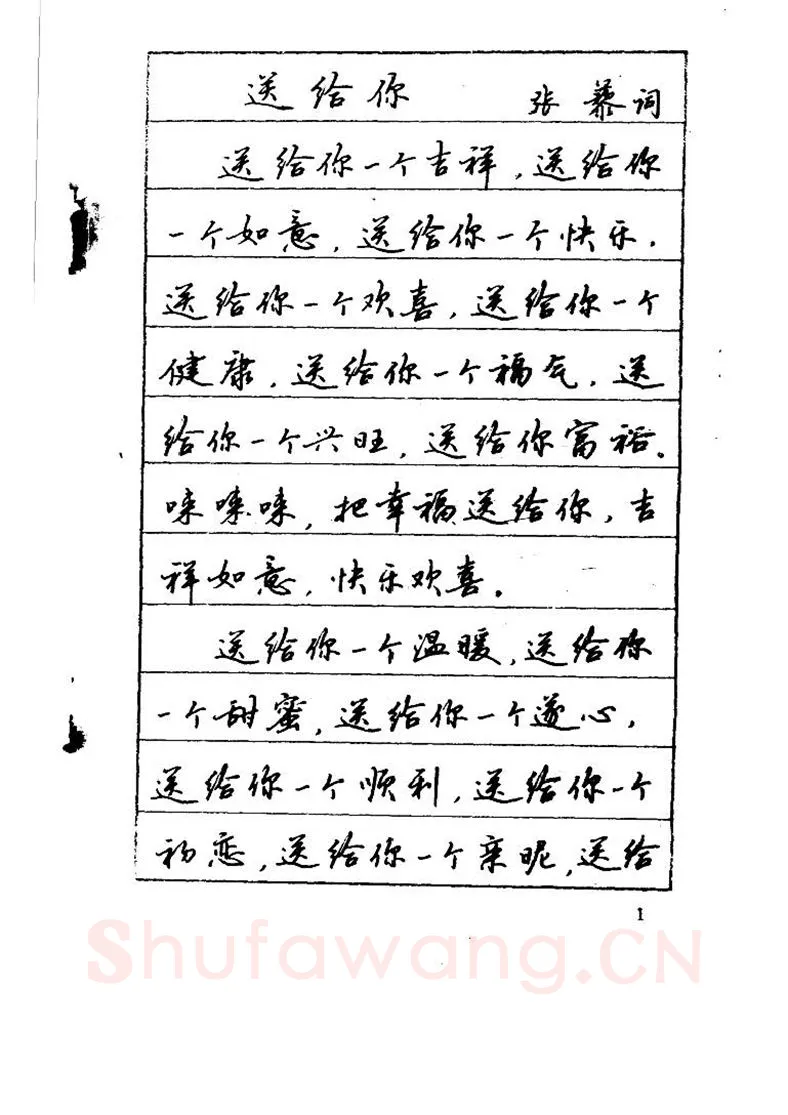 送给你 张藜词
送给你一个吉祥,送给你
一个如意,送给你一个快乐,
送给你一个欢喜,送给你一个
健康,送给你一个福气,送
给你一个兴旺,送给你富裕。
唻唻唻,把幸福送给你,吉
祥如意,快乐欢喜。
送给你一个温暖,送给你
一个甜蜜,送给你一个遂心,
送给你一个顺利,送给你一个
初恋,送给你一个亲昵,送给
1
Shufawang.CN